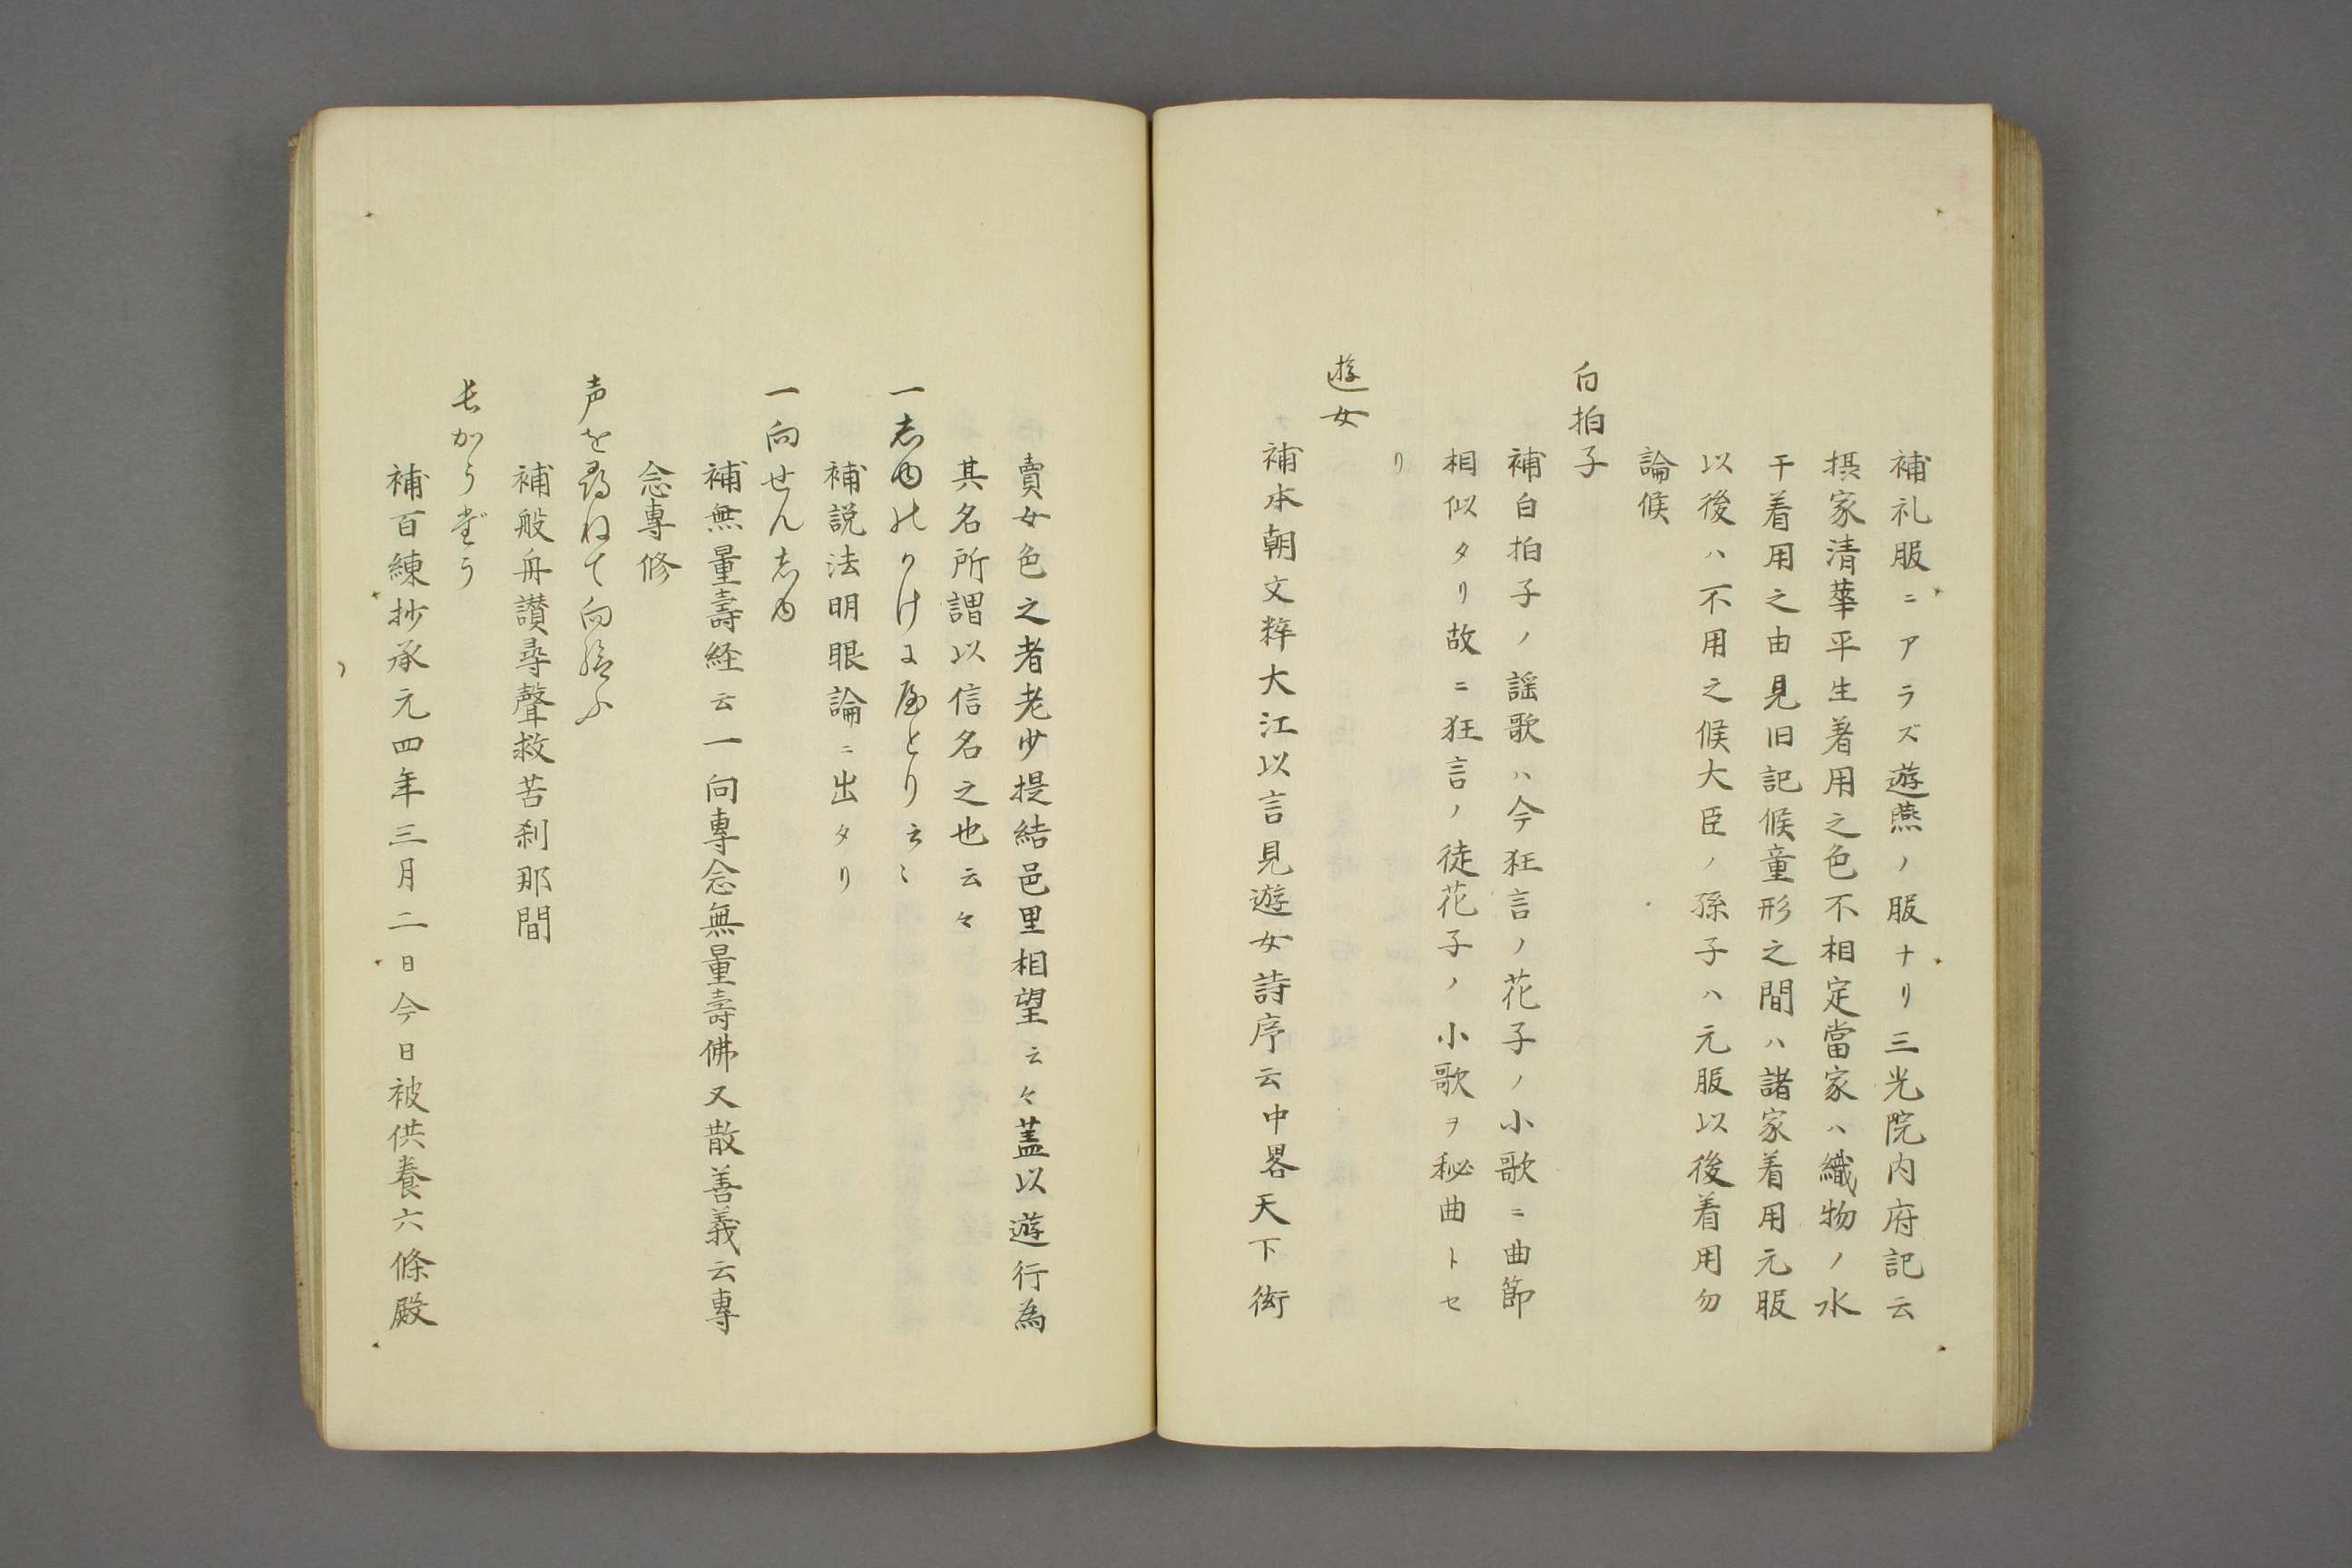 補礼服ニアラズ遊燕ノ服ナリ三光院内府記云
摂家清華平生着用之色不相定當家ハ織物ノ水
干着用之由見旧記候童形之間ハ諸家着用元服
以後ハ不用之候大臣ノ孫子ハ元服以後着用勿
論候
白拍子
補白拍子ノ謡歌ハ今狂言ノ花子ノ小歌ニ曲節
相似タリ故ニ狂言ノ徒花子ノ小歌ヲ秘曲トセ
リ
遊女
補本朝文粹大江以言見遊女詩序云中畧天下衒
賣女色之者老少提結邑里相望云々蓋以遊行為
其名所謂以信名之也云々
一志ゆのかけにやとり云〻
補説法明眼論ニ出タリ
一向せん志ゆ
補無量壽経云一向專念無量壽佛又散善義云專
念專修
声を尋ねて向給ふ
補般舟讃尋聲救苦刹那間
長かうだう
補百練抄承元四年三月二日今日被供養六條殿